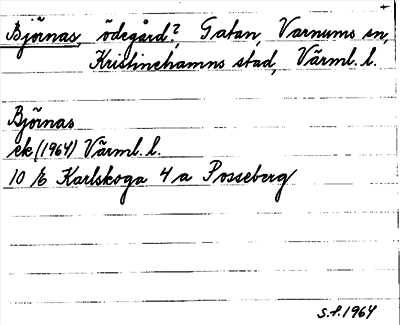 Björnas, ödegård?, Gatan, Varnums sn,
Kristinehamns stad, Värml. l.
Björnas
ek (1964) Värml. l.
10 E Karlskoga 4 a Posseberg
S.f. 1964